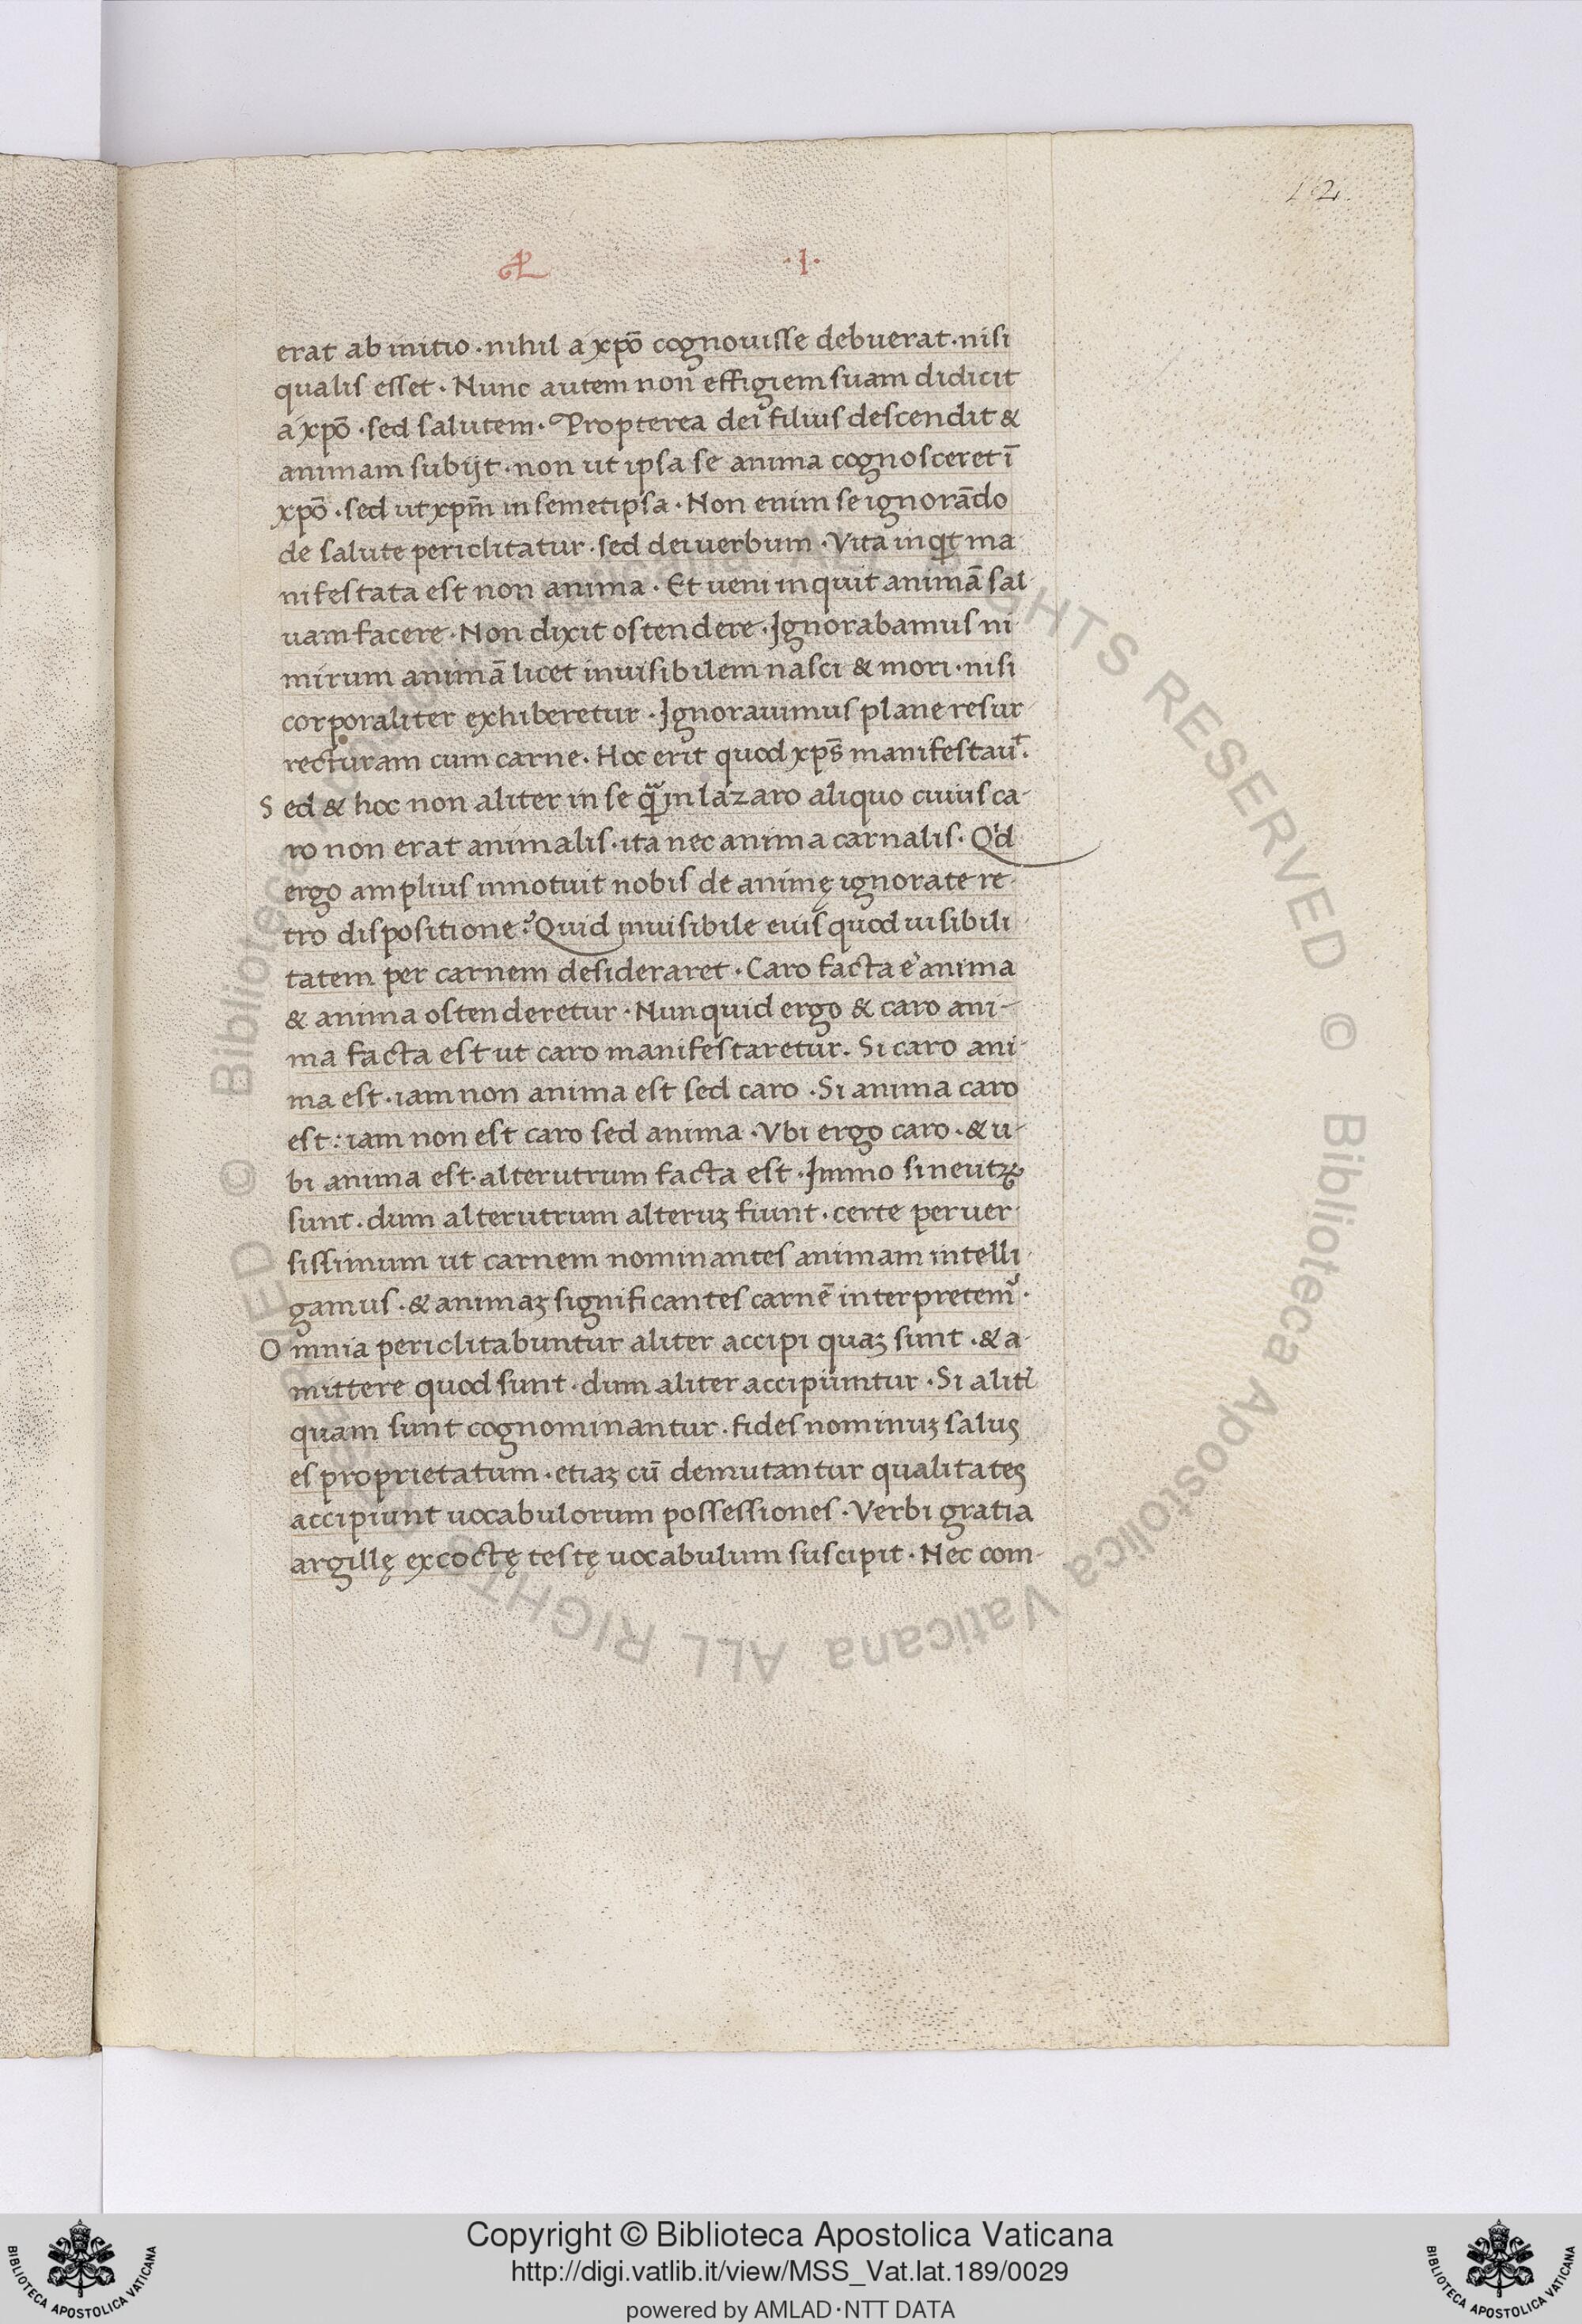 12
·I·
erat ab initio · nihil a xpō cognouisse debuerat · nisi
qualis esset · Nunc autem non effigiem suam didicit
a xpō · sed salutem · Propterea dei filius descendit &
animam subijt · non ut ipsa se anima cognosceret ī
xpō · sed ut xpm̄ in semetipsa · Non enim se ignorādo
de salute periclitatur · sed dei uerbum · Vita inqͭ ma
nifestata est non anima · Et ueni inquit animā sal
uam facere · Non dixit ostendere · Ignorabamus ni
mirum animā licet inuisibilem nasci & mori · nisi
corporaliter exhiberetur · Ignorauimus plane resur
recturam cum carne · Hoc erit quod xps̄ manifestauͭ ·
Sed & hoc non aliter in se ꝙᷓ in lazaro aliquo cuius ca-
ro non erat animalis · ita nec anima carnalis · Qͥd
ergo amplius innotuit nobis de animę ignorate re-
tro dispositione? Quid inuisibile eius quod uisibili
tatem per carnem desideraret · Caro facta ē anima
& anima ostenderetur · Nunquid ergo & caro ani-
ma facta est ut caro manifestaretur. Si caro ani-
ma est · iam non anima est sed caro · Si anima caro
est: iam non est caro sed anima · Vbi ergo caro · & u-
bi anima est · alterutrum facta est · Immo si neutꝝ
sunt · dum alterutrum alteruꝫ fiunt · certe peruer-
sissimum ut carnem nominantes animam intelli-
gamus · & animaꝫ significantes carnē interpretemᷣ ·
Omnia periclitabuntur aliter accipi quaꝫ sunt · & a-
mittere quod sunt · dum aliter accipiuntur · Si alit̄
quam sunt cognominantur · fides nominuꝫ salus
es proprietatum · etiaꝫ cū demutantur qualitates
accipiunt uocabulorum possessiones · Verbi gratia
argillę excoctę testę uocabulum suscipit · Nec com-
© Biblioteca Apostolica Vaticana ALL RIGHTS RESERVED © Biblioteca Apostolica Vaticana ALL RIGHTS RESERVED
Copyright © Biblioteca Apostolica Vaticana
http://digi.vatlib.it/view/MSS_Vat.lat.189/0029
powered by AMLAD·NTT DATA
BIBLIOTECA APOSTOLICA VATICANA
BIBLIOTECA APOSTOLICA VATICANA